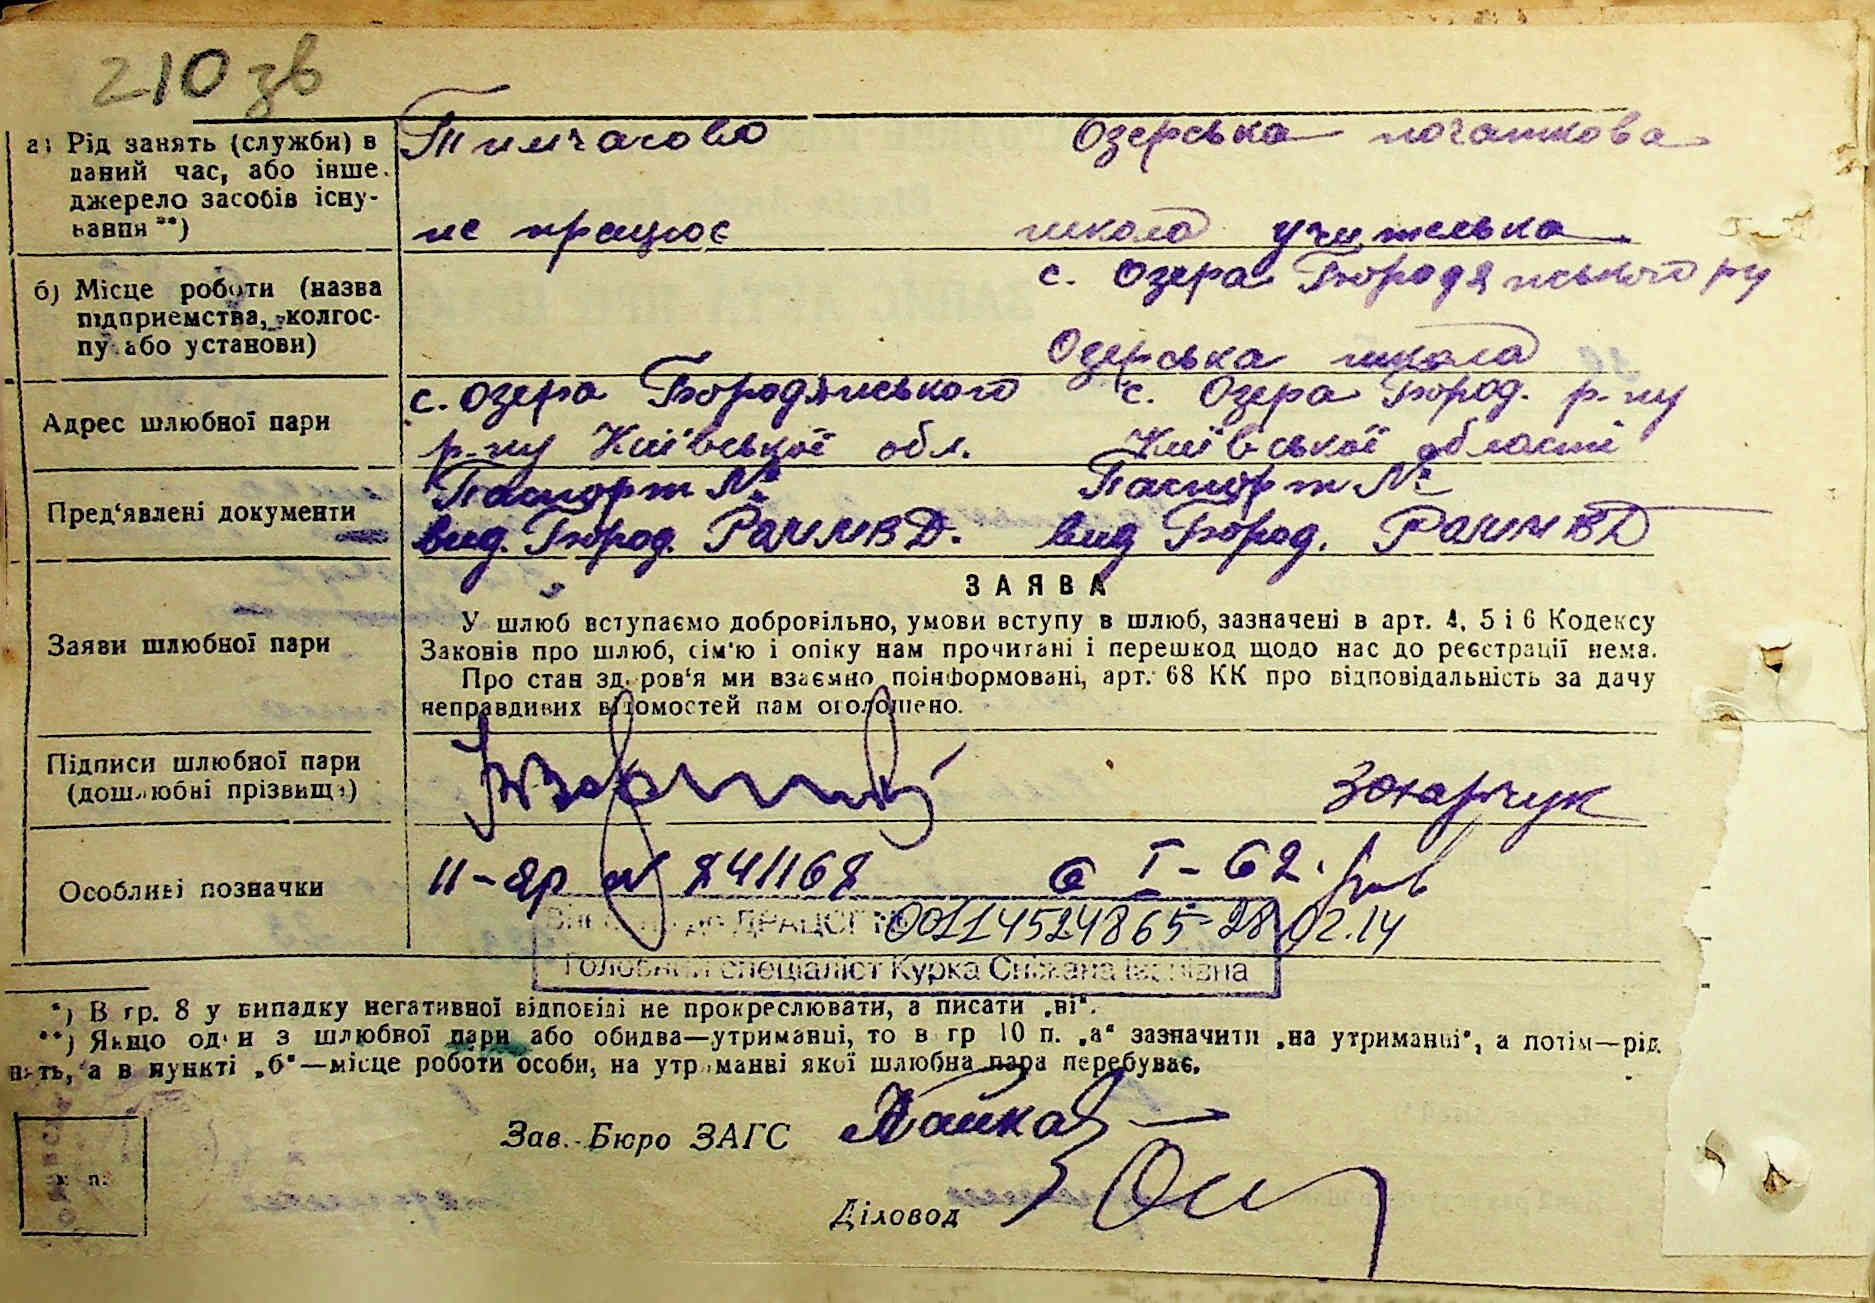 210 зв
а) Рід занять (служби) в даний час, або інше джерело засобів існування **)
Тимчасово
не працює
Озерська початкова
школа учителька
с. Озера Бородянського р-ну
б) Місце роботи (назва підприємства, колгоспу або установи)
Озерська школа
Адрес шлюбної пари
с. Озера Бородянського
р-ну Київської обл.
с. Озера Бород. р-ну
Київської області
Пред'явлені документи
Паспорт №
вид. Бород. РОМВД.
Паспорт №
вид Бород. РОМВД
Заяви шлюбної пари
ЗАЯВА
У шлюб вступаємо добровільно, умови вступу в шлюб, зазначені в арт. 4, 5 і 6 Кодексу
Законів про шлюб, сім'ю і опіку нам прочитані і перешкод щодо нас до реєстрації нема.
Про стан здоров'я ми взаємно поінформовані, арт. 68 КК про відповідальність за дачу
неправдивих відомостей нам оголошено.
Підписи шлюбної пари
(дошлюбні прізвища)
Захарчук
Особливі позначки
II-яр № 241168 6 I-62.
Внесено до ДРАЦСГ № 00114524865-28.02.14
Головний спеціаліст Курка Сніжана
*) В гр. 8 у випадку негативної відповіді не прокреслювати, а писати „ні“.
**) Якщо один з шлюбної пари або обидва—утриманці, то в гр 10 п. „а“ зазначити „на утриманні“, а потім—рід
нять, а в пункті „б“—місце роботи особи, на утриманні якої шлюбна пара перебуває.
Зав. Бюро ЗАГС
Діловод
м. п.